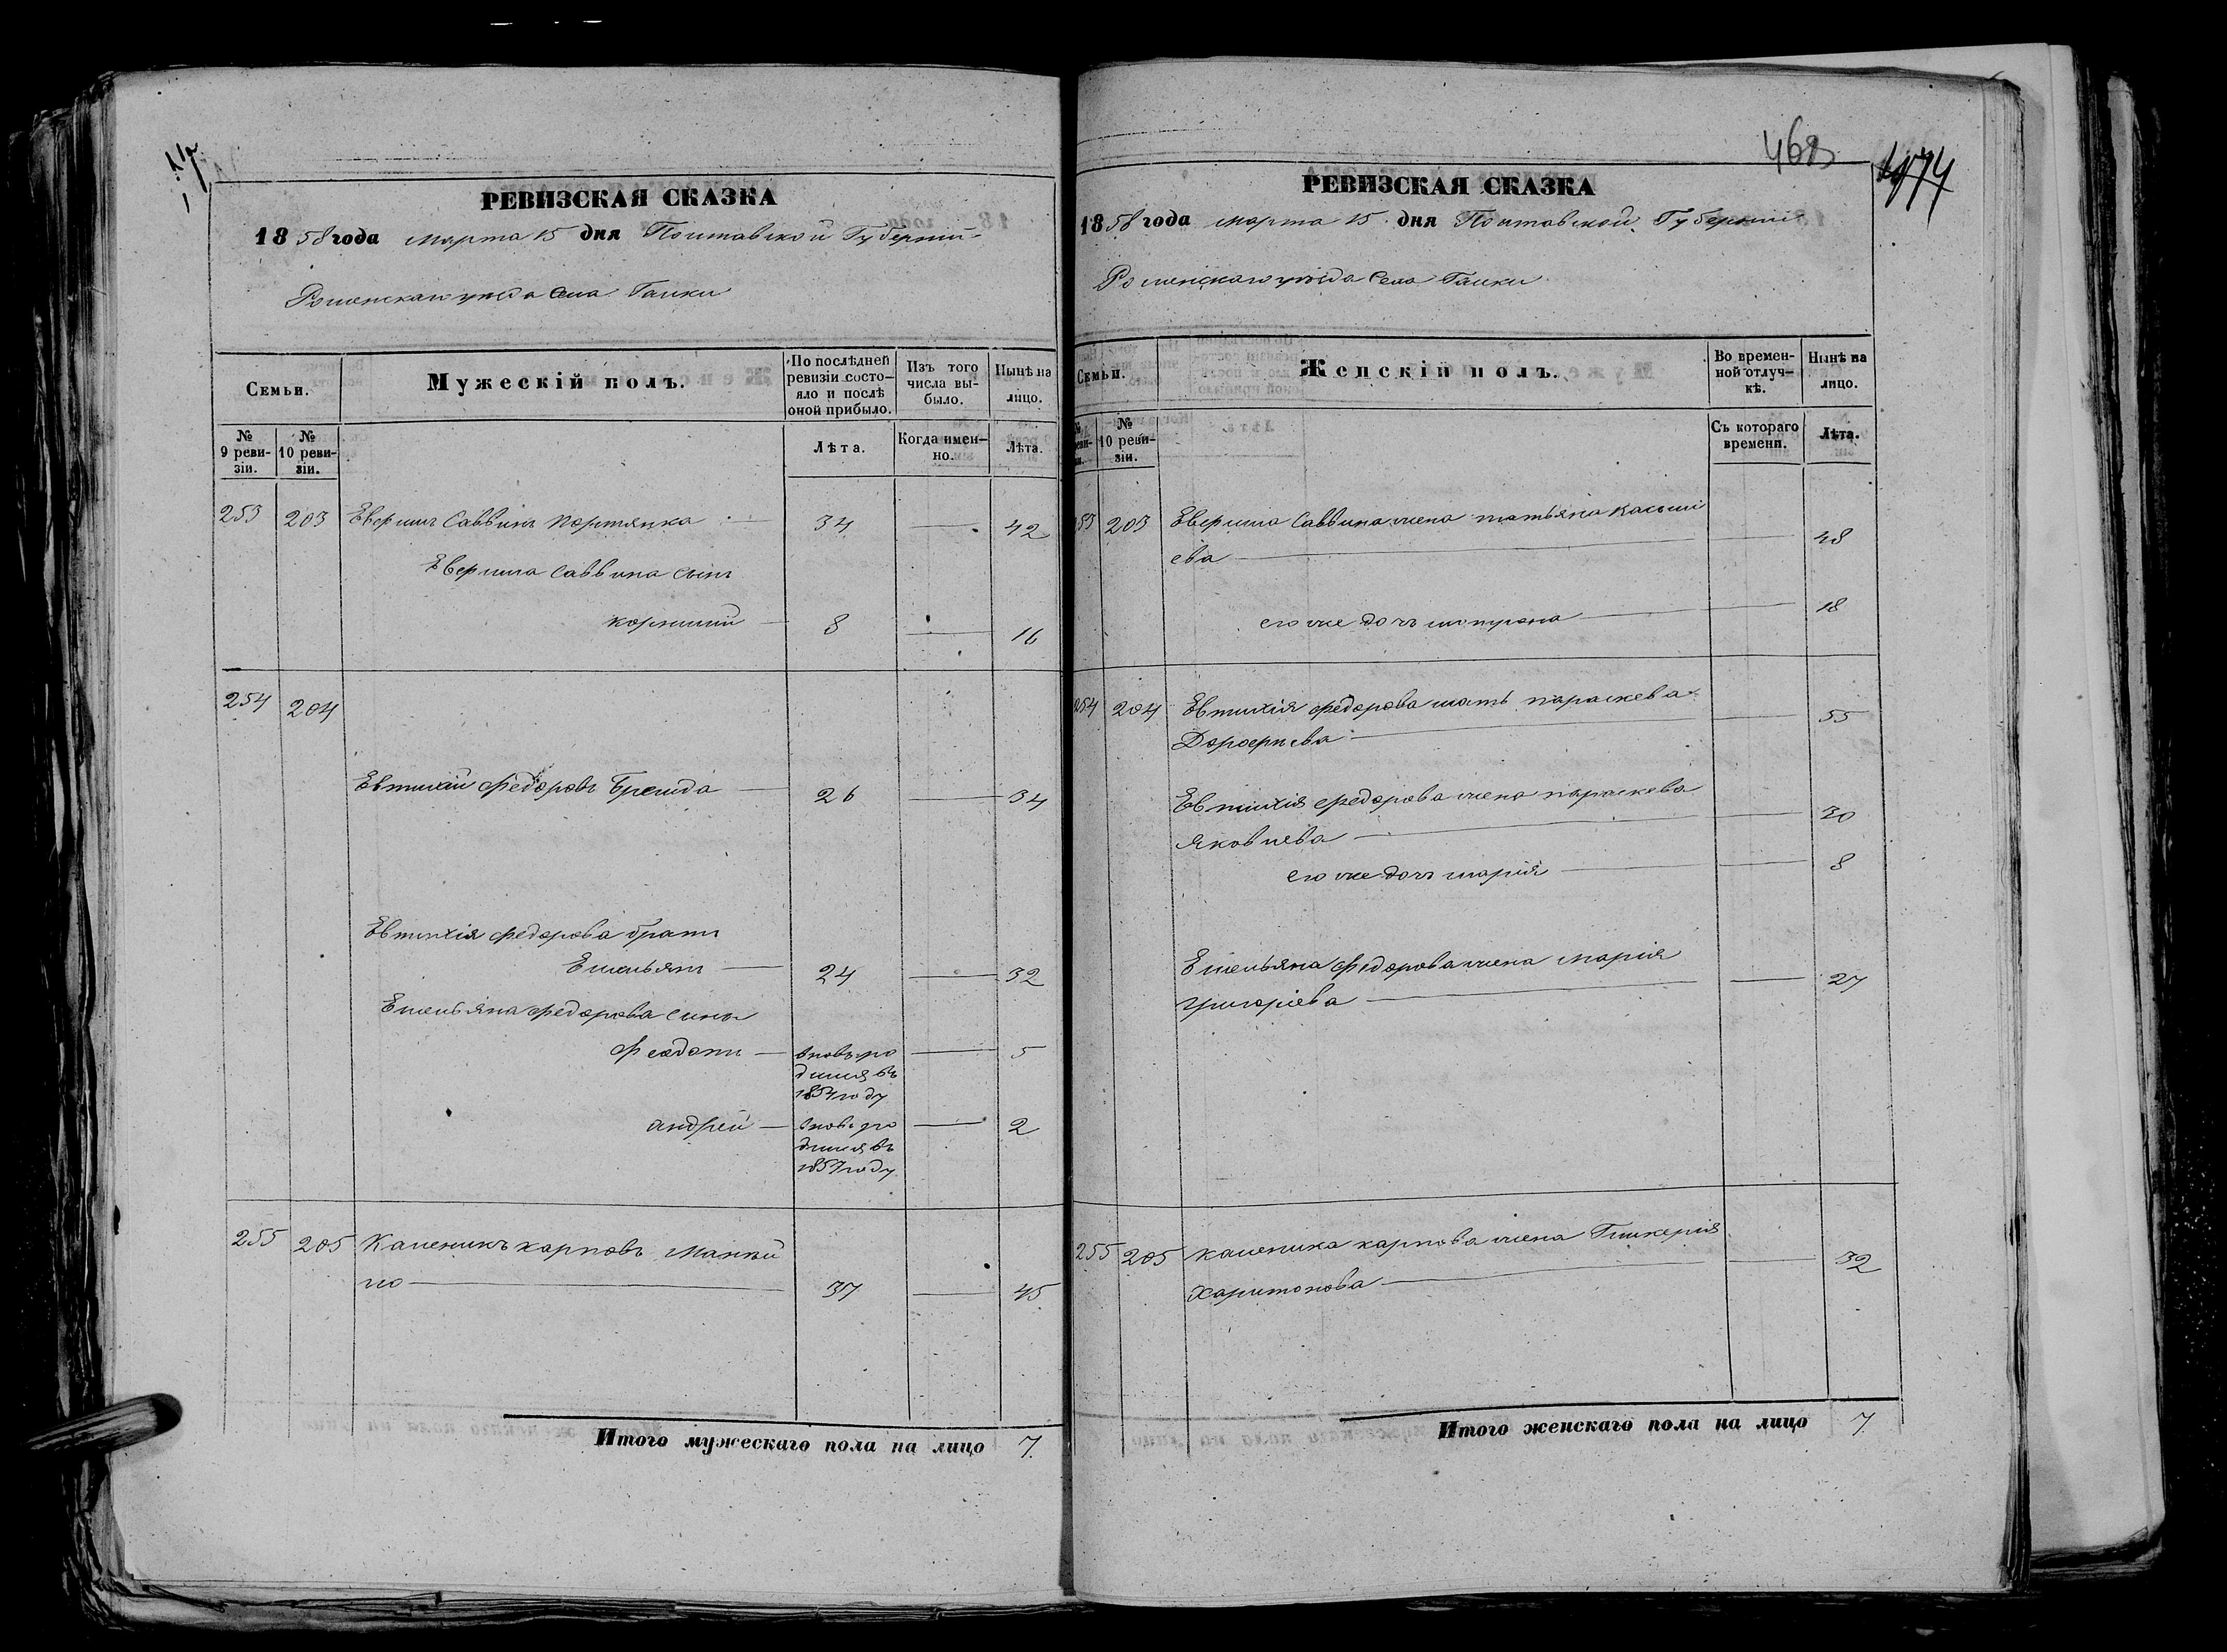 РЕВИЗСКАЯ СКАЗКА
1858 года марта 15 дня Полтавской Губерніи
Роменскаго уезда Села Галки
Семьи.
Мужескій полъ.
По послѣдней ревизіи состо-
яло и послѣ
оной прибыло.
Изъ того
числа вы-
было.
Нынѣ на
лицо.
№
9 реви-
зіи.
№
10 реви-
зіи.
Лѣта.
Когда имен-
но.
Лѣта.
253 203 Саввинъ Портянка 34 42
Саввина сынъ
Корнилій 8 16
254 204
Евтихій Федоровъ 26 34
Евтихія Федорова братъ
Емельянъ 24 32
Емельяна Федорова сыны
Феодотъ вновь ро 5
дился въ
году
Андрей вновь ро 2
дился въ
1857 году
255 205 Каленикъ Карповъ
37 45
Итого мужескаго пола на лицо 7.
468
РЕВИЗСКАЯ СКАЗКА
1858 года марта 15 дня Полтавской Губерніи
Роменскаго уезда Села Галки
Семьи.
Женскій полъ.
Во времен-
ной отлуч-
кѣ.
Нынѣ на
лицо.
№
10 реви-
зіи.
Съ котораго
времени.
Лѣта.
253 203 Саввина жена татьяна
ева 48
его же дочь мотрона 18
254 204 Евтихія Федорова мать параскева
Дорофеева 55
Евтихія Федорова жена параскева
Яковлева 30
его же дочь марія 8
Емельяна Федорова жена Марія
Григоріева 27
255 205 Каленика Карпова жена Гликерія
Харитонова 32
Итого женскаго пола на лицо 7